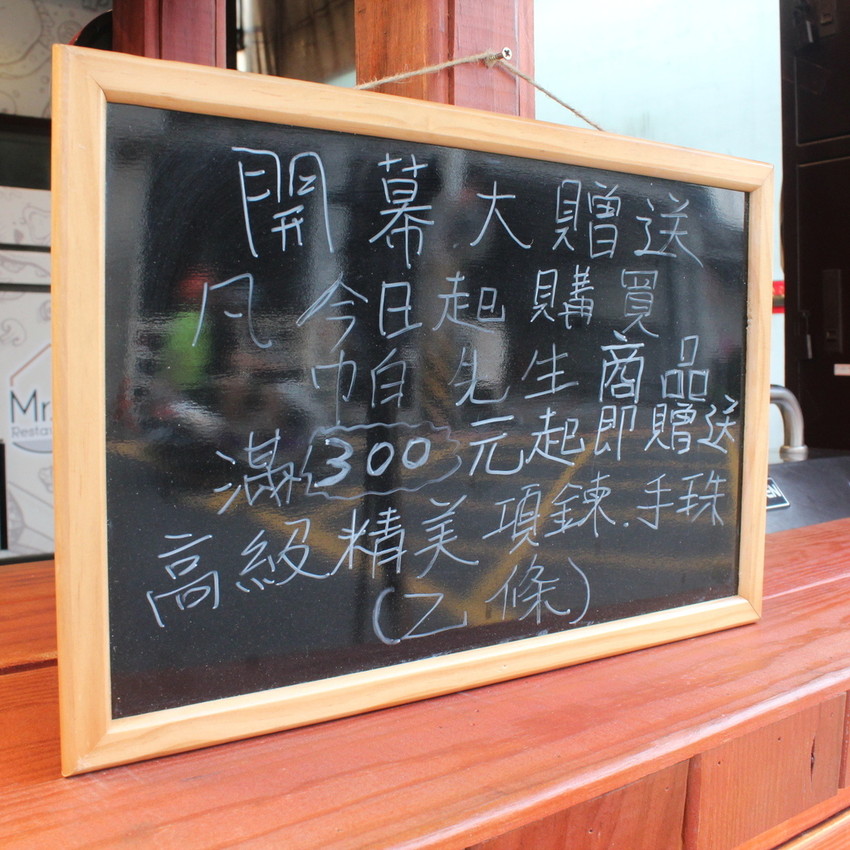 開幕大贈送
凡今日起購買
帕先生商品
滿300元起即贈送
高級精美項鍊.手珠
(乙條)
Mr.
Resta
EN